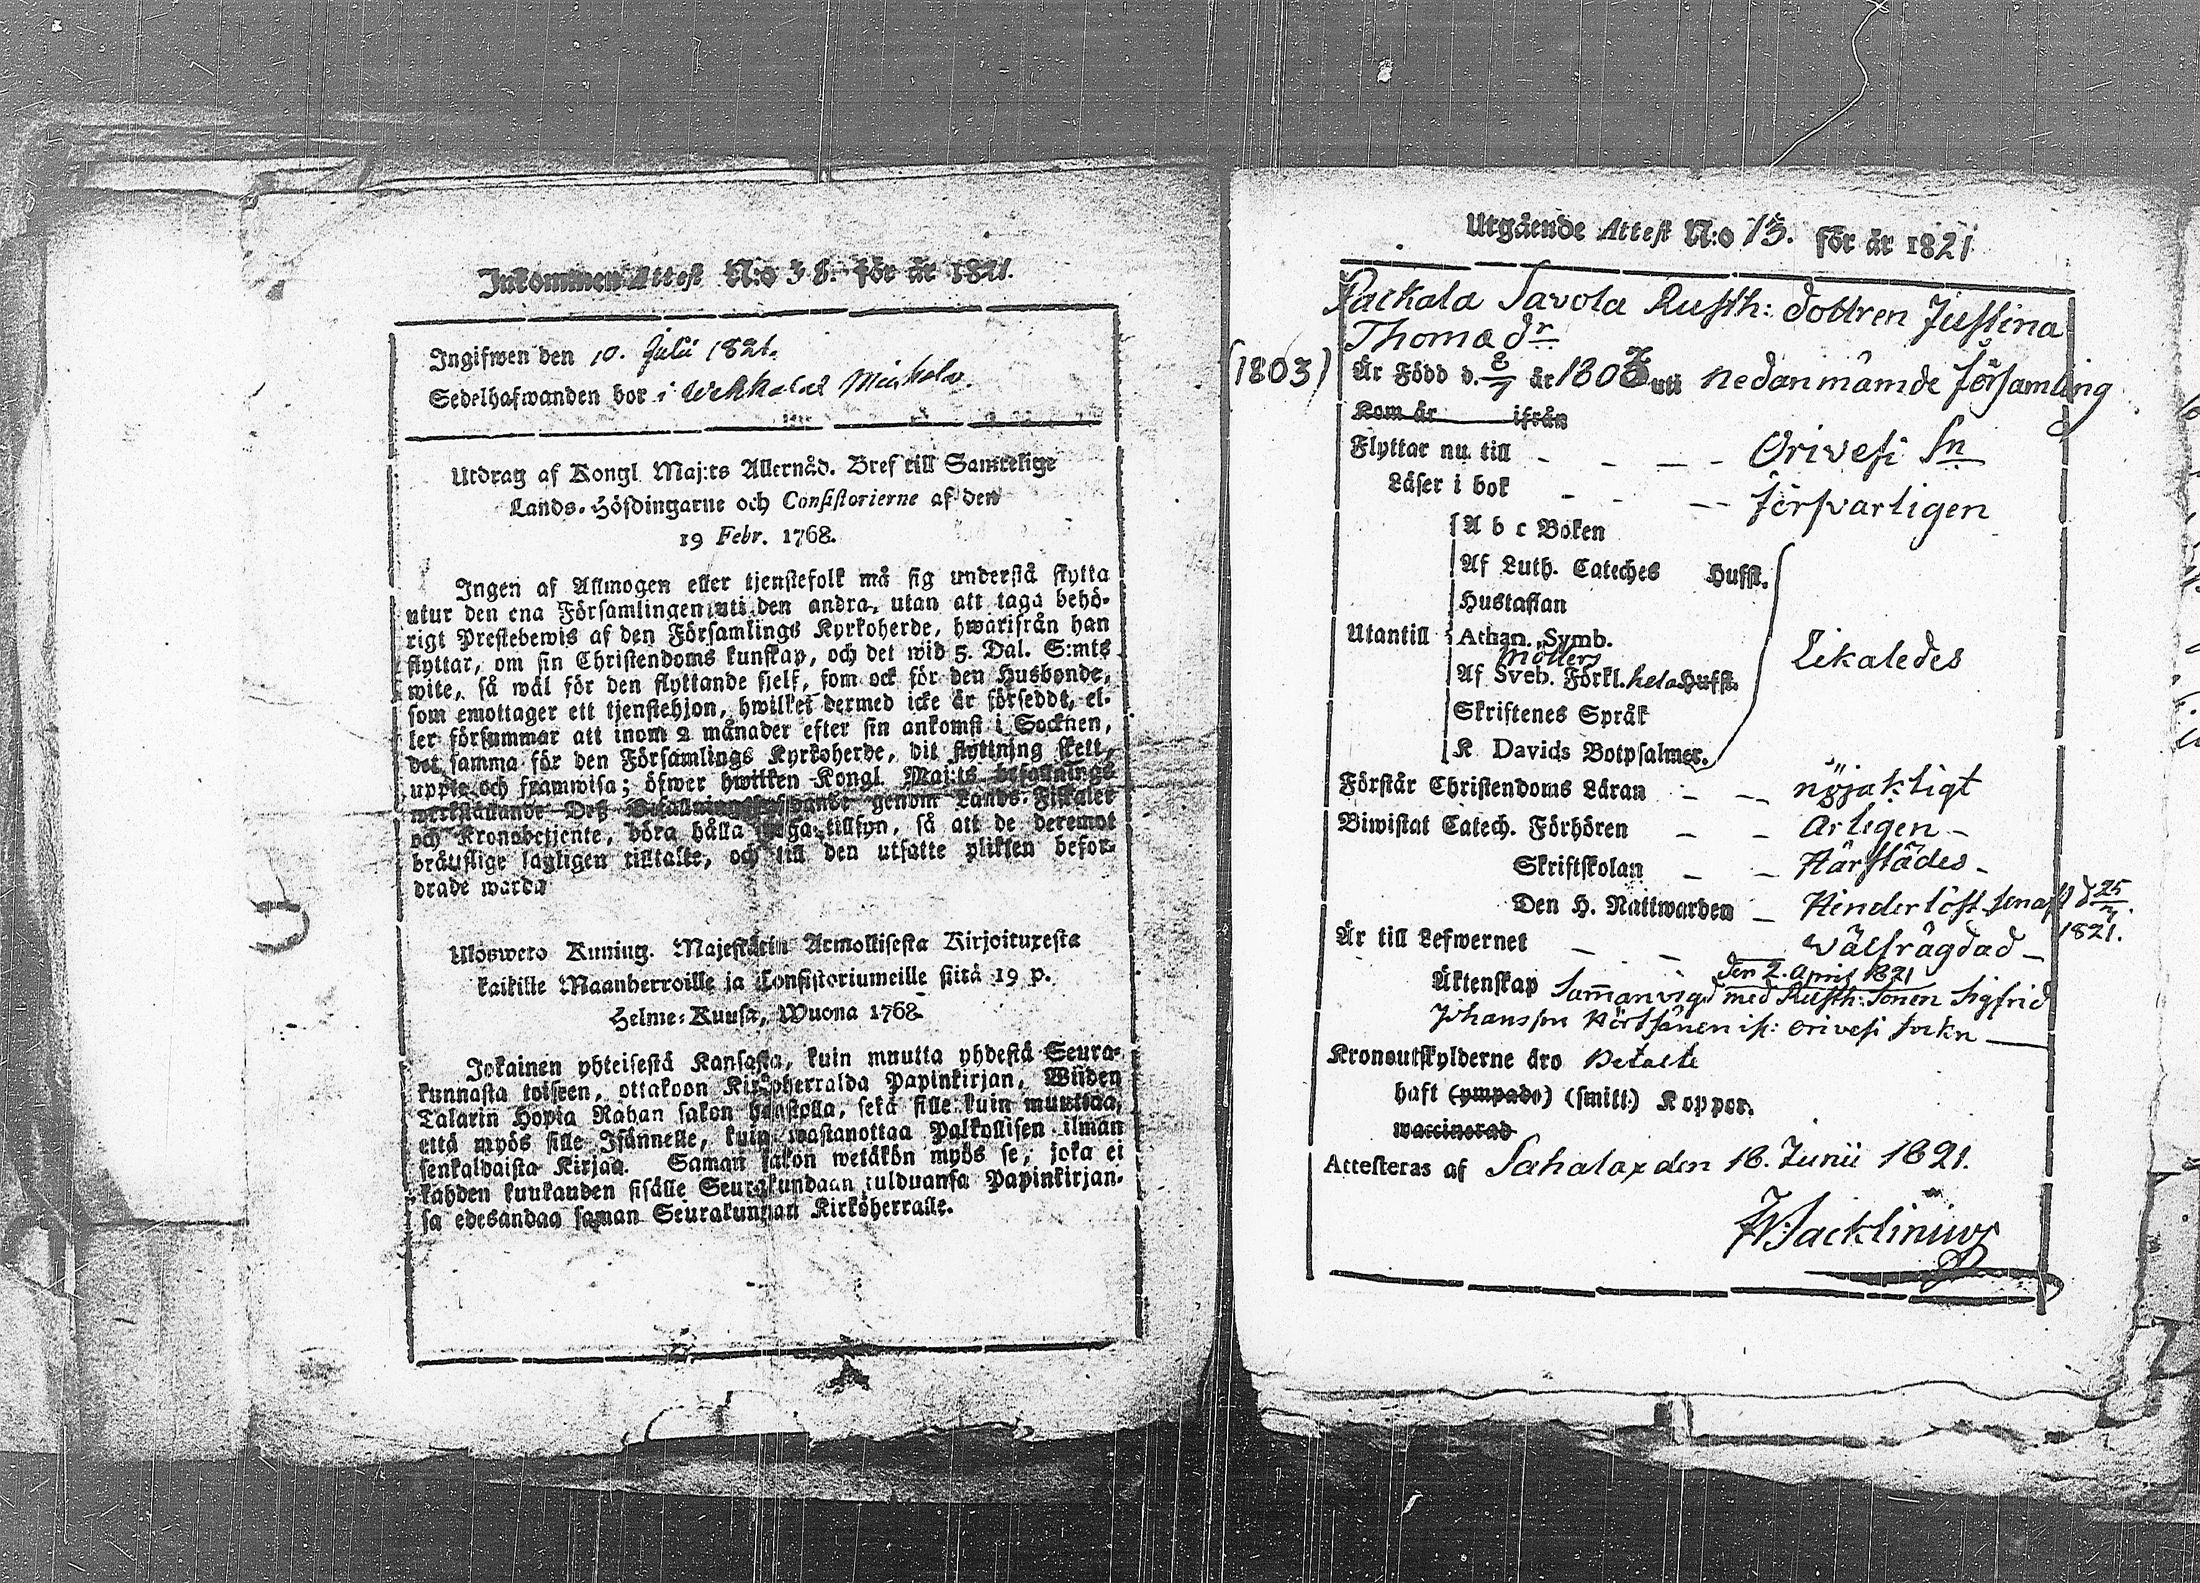 Inkommen Attest N:o 38. för år 1821.
Ingifwen den 10. Julii 1821.
Sedelhafwanden bor i
Utdrag af Kongl. Maj:ts Allernåd. Bref till Samtelige
Lands-Höfdingarne och Consistorierne af den
19 Febr. 1768.
Ingen af Allmogen eller tjenstefolk må sig understå flytta
utur den ena Församlingen uti den andra, utan att taga behö-
rigt Prestebewis af den Församlings Kyrkoherde, hwarifrån han
flyttar, om sin Christendoms kunskap, och det wid 5. Dal. S:mts
wite, så wäl för den flyttande sjelf, som ock för den Husbonde,
som emottager ett tjenstehjon, hwilket dermed icke är försedt, el-
ler försummar att inom 2 månader efter sin ankomst i Socknen,
det samma för den Församlings Kyrkoherde, dit flyttning skett,
uppte och framwisa; öfwer hwilken Kongl. Maj:ts befallnings
werkställande Deß Befallningshafwande genom Lands-Fiskaler
och Kronobetjente, böra hålla noga tillsyn, så att de deremot
bråttslige lagligen tilltalte, och till den utsatte plikten befor-
drade warda
Ulosweto Kuning. Majestätin Armollisesta Kirjoituxesta
kaikille Maanherroille ja Consistoriumeille siitä 19 p.
Helme-Kuusa, Wuona 1768.
Jokainen yhteisestä Kansasta, kuin muutta yhdestä Seura-
kunnasta toiseen, ottakoon Kirkoherralda Papinkirjan, Wiiden
Talarin Hopia Rahan sakon haastolla, sekä sille kuin muuttaa,
että myös sille Isännelle, kuin wastanottaa Palkollisen ilman
senkaldaista Kirjaa. Saman sakon wetäkön myös se, joka ei
kahden kuukauden sisälle Seurakundaan tulduansa Papinkirjan-
sa edesandaa saman Seurakunnan Kirkoherralle.
Utgående Attest N:o 13. för år 1821
Packala Savola Rusth: dottren Justina
Thomædr
(1803) Är Född d. 8/7 år 1803 uti nedanmämde församling
Kom år ifrån
Flyttar nu till - - - - Orivesi Sn
Läser i bok - - - försvarligen
A b c Boken
Af Luth. Cateches Hufst.
Hustaflan
Utantill Athan. Symb.
Möllers
Af Sveb. Förkl. hela Hufst.
Skriftenes Språk
K Davids Botpsalmer.
Likaledes
Förstår Christendoms Läran - - nöjaktigt
Biwistat Catech. Förhören - - Arligen -
Skriftskolan - - Härstädes -
Den H. Nattwarden - Hinderlöst senast d 25/3.
1821.
Är till Lefwernet - - - Välfrägdad -
den 2. April 1821
Äktenskap Sam̄anvigd med Rusth: Sonen Sigfrid
Johansson Hörtsänen if: Orivesi sockn
Kronoutskylderne äro Betalte
haft (ympade) (smitt.) Koppor.
waccinerad
Attesteras af Sahalax den 18. Junii 1821.